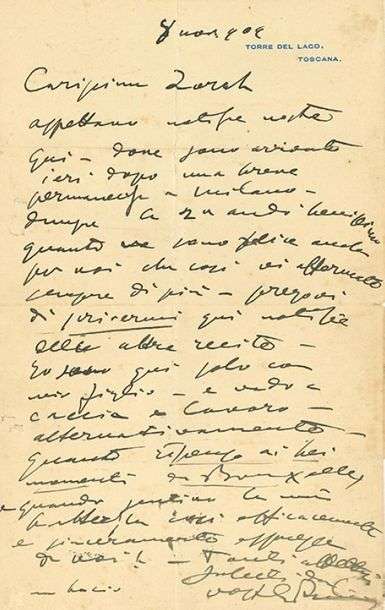 8 nov 909
TORRE DEL LAGO,
TOSCANA.
Carissimi Zorah
aspettavo notizie vostre
qui - dove sono arrivato
ieri dopo una breve
permanenza a Milano -
andò benissimo
quanto ne sono felice anche
per voi che così vi affermate
sempre di più - pregovi
di scrivermi qui notizie
delle altre recite -
Io sono qui solo con
mio figlio - e vado a
caccia e lavoro -
alternativamente -
quanto ripenso ai bei
momenti di Bruxelles
quando sentivo la mia
così efficacemente
e sinceramente
da voi! - Tanti
saluti dal
vostro
un bacio